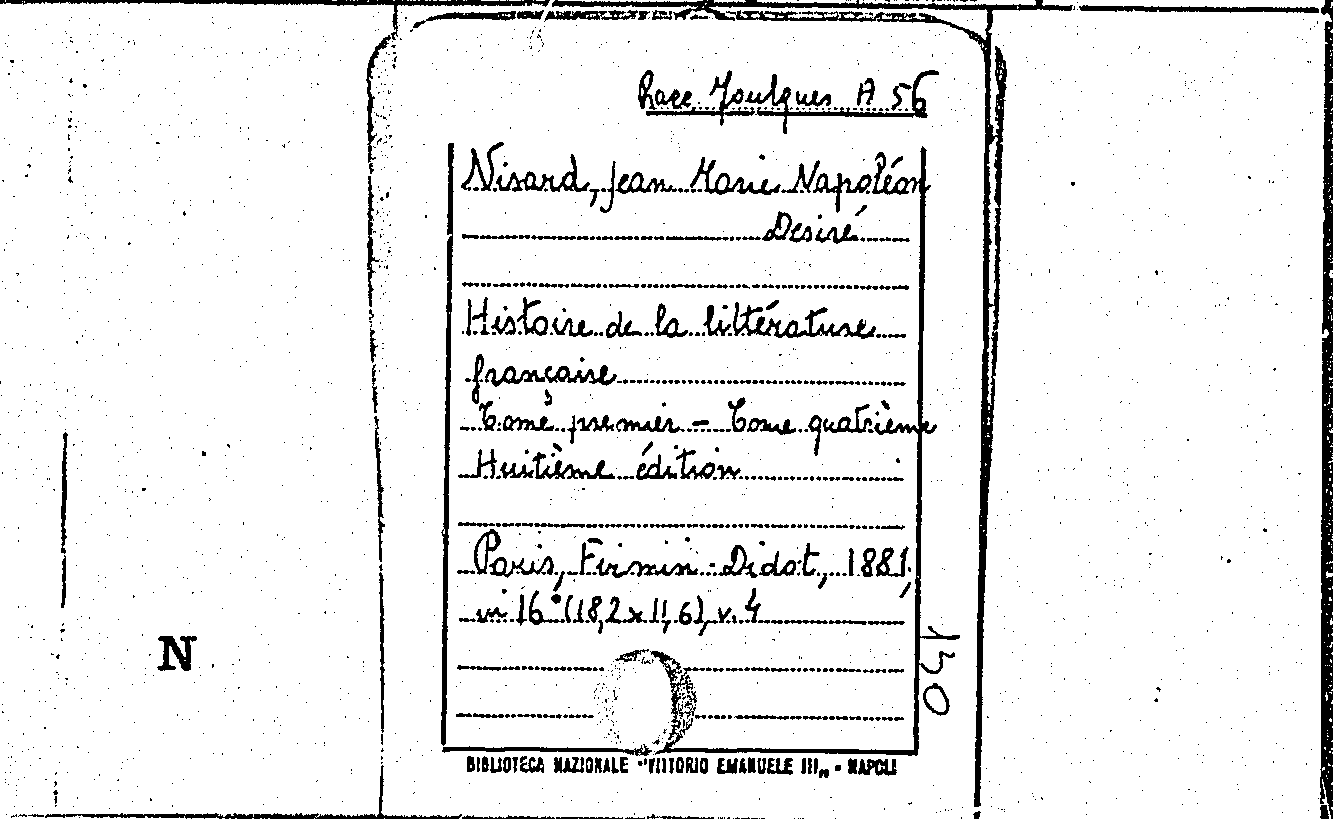 Racc. Foulques A 56
Nisard, Jean Marie Napoléon
Desiré
Histoire de la littérature
française
Tome premier - Tome quatrième
Huitième édition
Paris, Firmin-Didot, 1881,
in 16° (18,2 x 11,6), v. 4
140
N
BIBLIOTECA NAZIONALE "VITTORIO EMANUELE III„ - NAPOLI